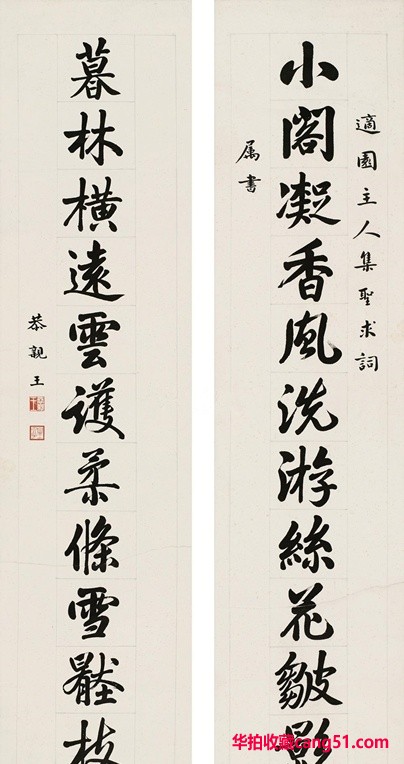 適園主人集聖求詞
小閣凝香風洗游絲花皺影
属書
暮林橫遠雲護柔條雪枝
恭親王
华拍收藏cang51.com